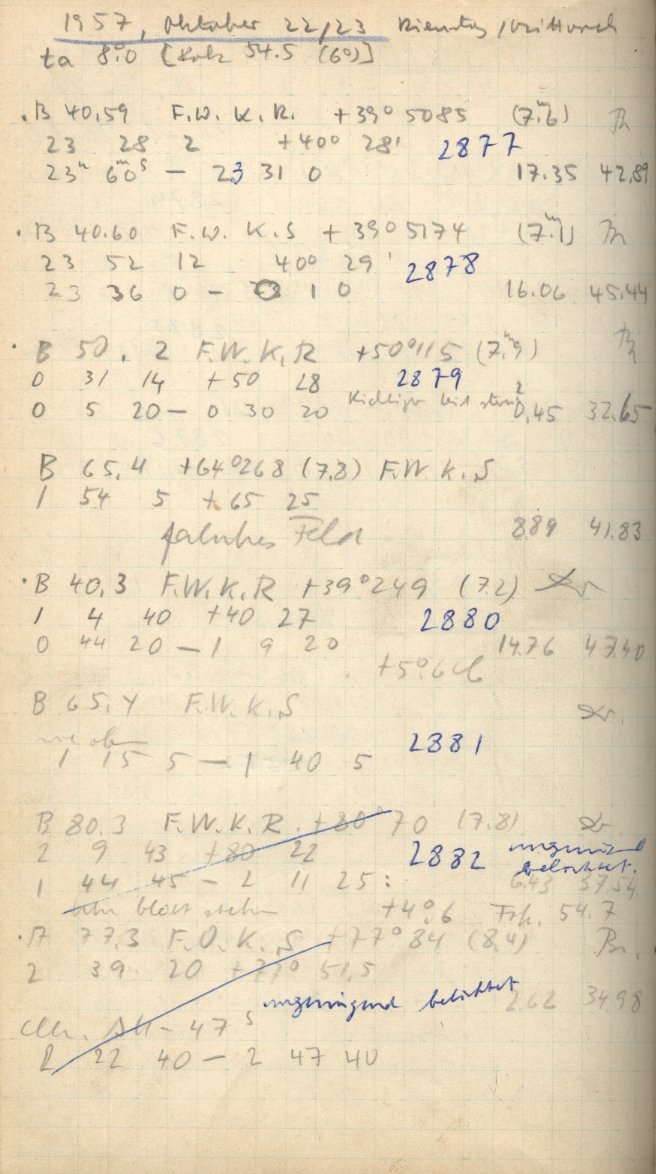 1957, Oktober 22/23 Dienstag/Mittwoch
ta 8.0 [Fok 54.5 (6°)]
. B 40.59 F.W. K.R. +39° 5085 (7.ᵐ6)
23 28 2 +40° 28' 2877
23ʰ 6ᵐ0ˢ — 23 31 0 17.35 42.89
. B 40.60 F.W. K.S +39° 5174 (7.ᵐ1)
23 52 12 40° 29' 2878
23 36 0 — 0 1 0 16.06 45.44
. B 50. 2 F.W.K.R +50° 115 (7.ᵐ9)
0 31 14 +50 28 2879
0 5 20 — 0 30 20 0.45 32.65
B 65.4 +64° 268 (7.8) F.W.K.S
1 54 5 +65 25
falsches Feld 8.89 41.83
. B 40.3 F.W.K.R +39° 249 (7.2)
1 4 40 +40 27 2880
0 44 20 — 1 9 20 14.76 47.40
+5.°6
B 65.4 F.W.K.S
wie oben 2881
1 15 5 — 1 40 5
B 80.3 F.W.K.R. +80° 70 (7.8)
2 9 43 +80 22 2882 ungenügend belichtet.
1 44 45 — 2 11 25: 6.43 57.54
Uhr bleibt stehen +4.°6 Fok. 54.7
. A 77.3 F.O.K.S +77° 84 (8.4)
2 39 20 +77° 51.5
ungenügend belichtet 2.62 34.98
- 47ˢ
2 22 40 — 2 47 40